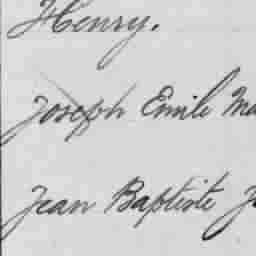 Henry.
Joseph Emile Ma
Jean Baptiste J